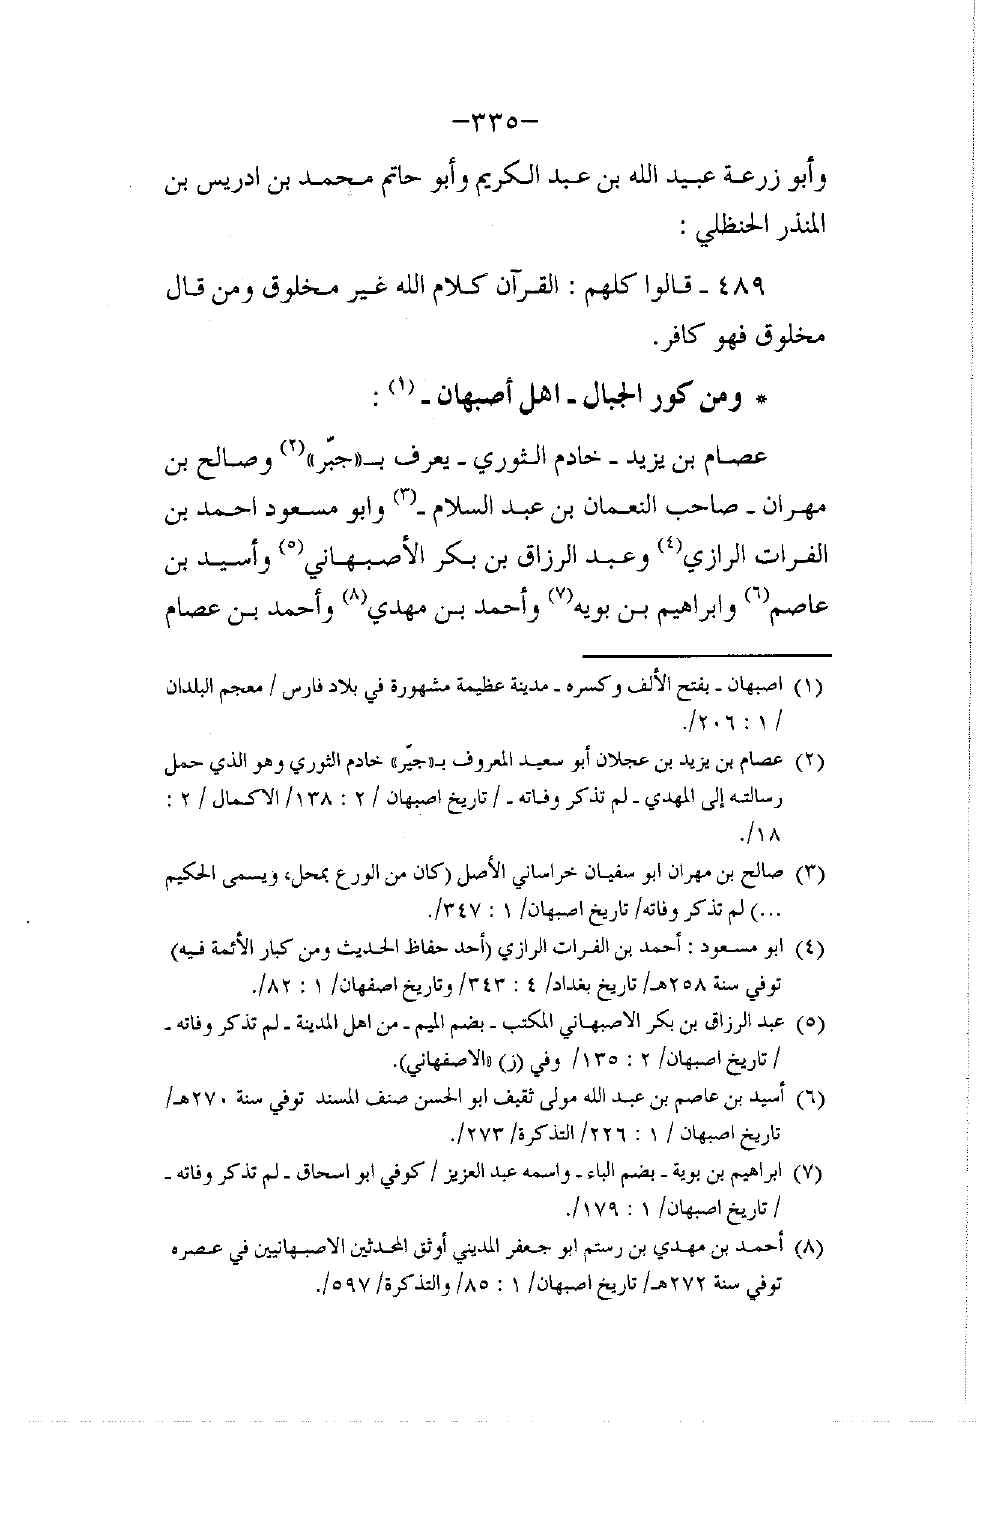 -٣٣٥-
وأبو زرعة عبيد الله بن عبد الكريم وأبو حاتم محمد بن ادريس بن
المنذر الحنظلي :
٤٨٩ - قالوا كلهم : القرآن كلام الله غير مخلوق ومن قال
مخلوق فهو كافر.
* ومن كور الجبال - اهل أصبهان - (١) :
عصام بن يزيد - خادم الثوري - يعرف بـ«جبّر»(٢) وصالح بن
مهران - صاحب النعمان بن عبد السلام -(٣) وابو مسعود احمد بن
الفرات الرازي(٤) وعبد الرزاق بن بكر الأصبهاني(٥) وأسيد بن
عاصم(٦) وابراهيم بن بويه(٧) وأحمد بن مهدي(٨) وأحمد بن عصام
(١) اصبهان - بفتح الألف وكسره - مدينة عظيمة مشهورة في بلاد فارس / معجم البلدان
/ ١ : ٢٠٦/.
(٢) عصام بن يزيد بن عجلان أبو سعيد المعروف بـ«جيّر» خادم الثوري وهو الذي حمل
رسالته إلى المهدي - لم تذكر وفاته - / تاريخ اصبهان / ٢ : ١٣٨/ الاكمال / ٢ :
١٨/.
(٣) صالح بن مهران ابو سفيان خراساني الأصل (كان من الورع بمحل، ويسمى الحكيم
...) لم تذكر وفاته/ تاريخ اصبهان/ ١ : ٣٤٧/.
(٤) ابو مسعود : أحمد بن الفرات الرازي (أحد حفاظ الحديث ومن كبار الأئمة فيه)
توفي سنة ٢٥٨هـ/ تاريخ بغداد/ ٤ : ٣٤٣/ وتاريخ اصفهان/ ١ : ٨٢/.
(٥) عبد الرزاق بن بكر الاصبهاني المكتب - بضم الميم - من اهل المدينة - لم تذكر وفاته -
/ تاريخ اصبهان/ ٢ : ١٣٥/ وفي (ز) «الاصفهاني).
(٦) أسيد بن عاصم بن عبد الله مولى ثقيف ابو الحسن صنف المسند توفي سنة ٢٧٠هـ/
تاريخ اصبهان / ١ : ٢٢٦/ التذكرة/ ٢٧٣/.
(٧) ابراهيم بن بوية - بضم الباء - واسمه عبد العزيز / كوفي ابو اسحاق - لم تذكر وفاته -
/ تاريخ اصبهان/ ١ : ١٧٩/.
(٨) أحمد بن مهدي بن رستم ابو جعفر المديني أوثق المحدثين الاصبهانيين في عصره
توفي سنة ٢٧٢هـ/ تاريخ اصبهان/ ١ : ٨٥/ والتذكرة/ ٥٩٧/.